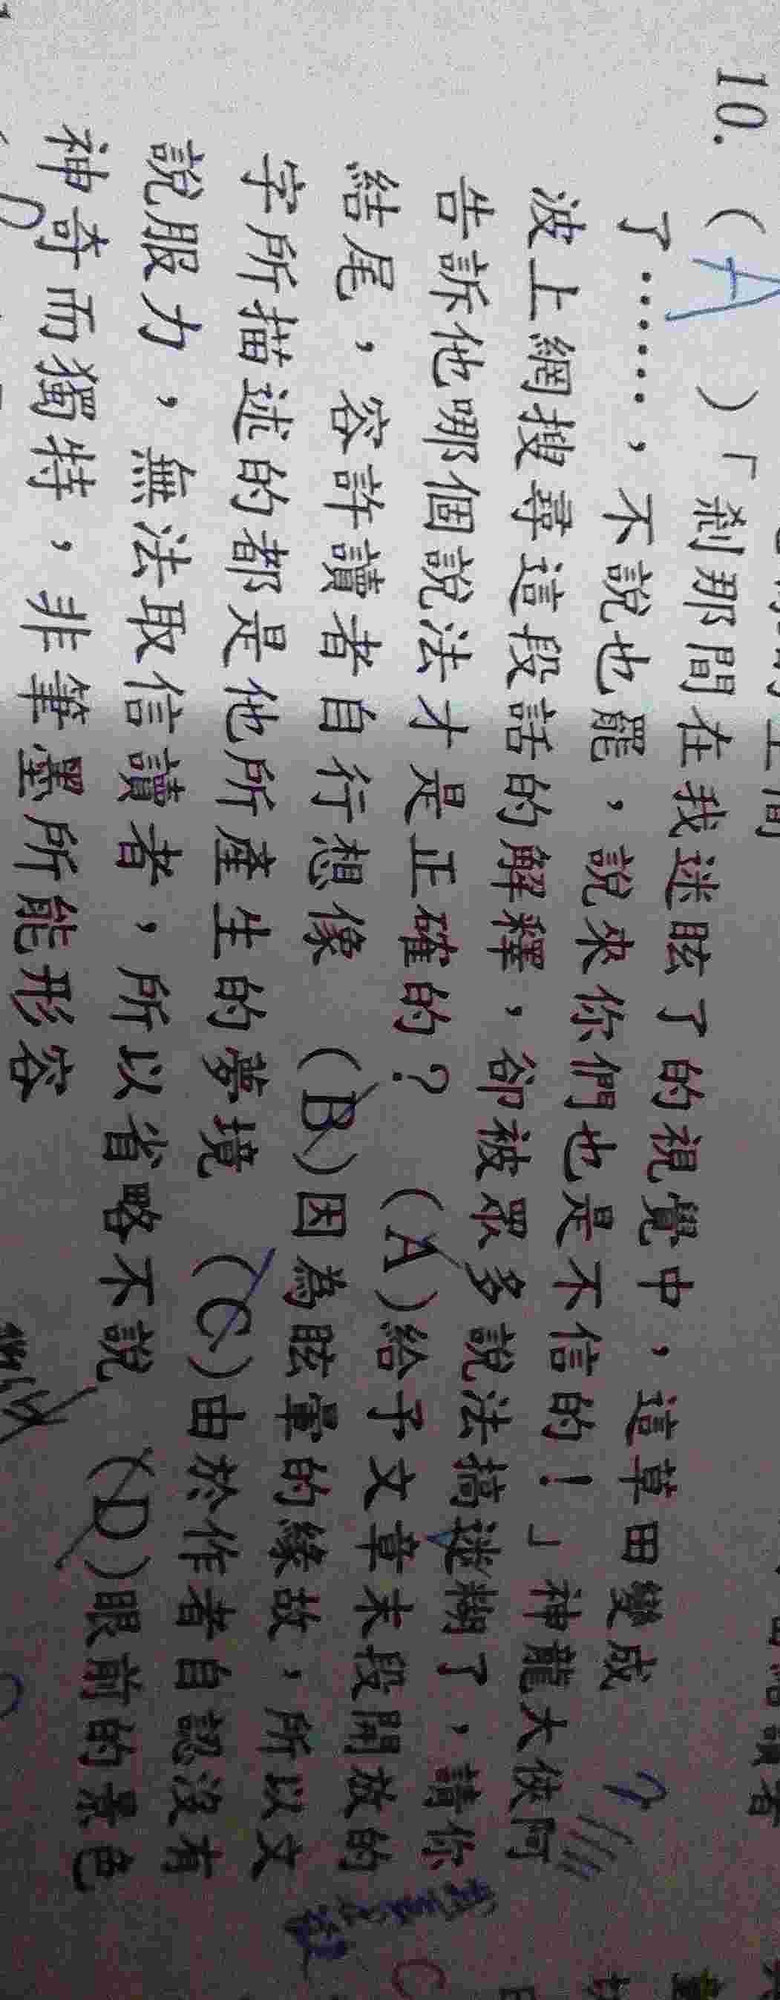 10.(A)「剎那間在我迷眩了的視覺中，這草田變成
了……，不說也罷，說來你們也是不信的！」神龍大俠阿
波上網搜尋這段話的解釋，卻被眾多說法搞迷糊了，請你
告訴他哪個說法才是正確的？ (A)給予文章末段開放的
結尾，容許讀者自行想像 (B)因為眩暈的緣故，所以文
字所描述的都是他所產生的夢境 (C)由於作者自認沒有
說服力，無法取信讀者，所以省略不說 (D)眼前的景色
神奇而獨特，非筆墨所能形容